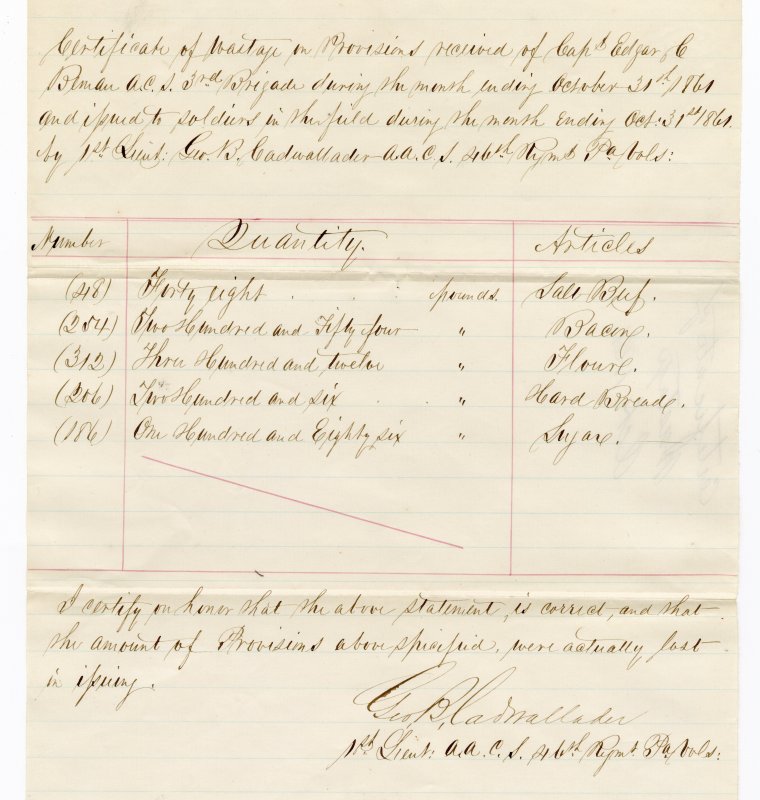 Certificate of Wastage on Provisions received of Capt Edgar C
Beman A.C.S. 3rd Brigade during the month ending October 31st/1861
and issued to soldiers in the field during the month ending Oct: 31st 1861.
by 1st Lieut: Geo. B. Cadwallader A.A.C.S. 46th Regmt Pa Vols:
Number Quantity. Articles
(48) Forty eight . . . pounds. Salt Beef.
(254) Two Hundred and Fifty four " Bacon.
(312) Three Hundred and twelve " Flour.
(206) Two Hundred and six . . " Hard Bread.
(186) One Hundred and Eighty six " Sugar.
I certify on honor that the above statement, is correct, and that
the amount of Provisions above specified, were actually lost
in issuing.
Geo. B. Cadwallader
1st Lieut: A.A.C.S. 46th Regmt Pa Vols: